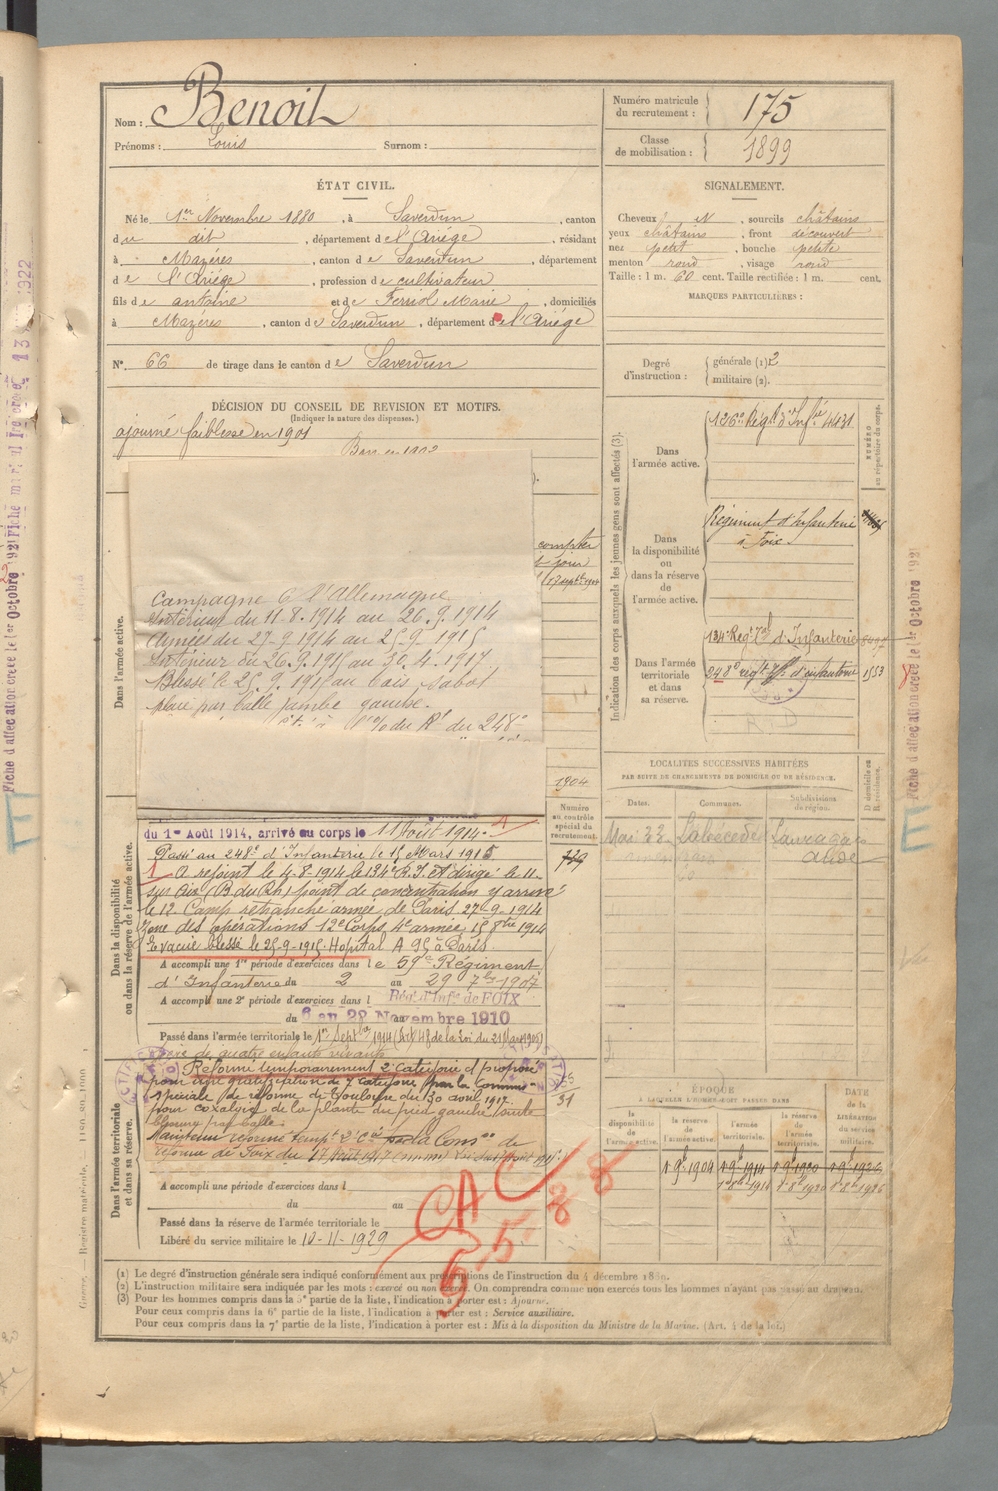 Nom : Benoit
Prénoms : Louis Surnom :
Numéro matricule du recrutement : 175
Classe de mobilisation : 1899
ÉTAT CIVIL.
Né le 1er Novembre 1880, à Saverdun, canton
du dit, département de l'Ariége, résidant
à Mazéres, canton de Saverdun, département
de l'Ariége, profession de cultivateur
fils de antoine et de Ferriol Marie, domiciliés
à Mazéres, canton de Saverdun, département de l'Ariége
N° 66 de tirage dans le canton de Saverdun
SIGNALEMENT.
Cheveux et, sourcils châtains
yeux châtains, front découvert
nez petit, bouche petite
menton rond, visage rond
Taille : 1 m. 60 cent. Taille rectifiée : 1 m. cent.
MARQUES PARTICULIÈRES :
Degré d'instruction : générale (1) 2
militaire (2).
DÉCISION DU CONSEIL DE REVISION ET MOTIFS.
(Indiquer la nature des dispenses.)
ajourné faiblesse en 1901
Bon en 1902
compter
jour
17 sept. 1904
Dans l'armée active.
Campagne c/ l'Allemagne
Intérieur du 11.8.1914 au 26.9.1914
Armées du 27.9.1914 au 25.9.1915
Intérieur du 26.9.1915 au 30.4.1917
Blessé le 25.9.1915 au bois sabot
plaie par balle jambe gauche.
du Rt du 248e
1904
Indication des corps auxquels les jeunes gens sont affectés (3).
NUMÉRO au répertoire du corps.
Dans l'armée active.
126e Régt d'Infie 4431
Dans la disponibilité ou dans la réserve de l'armée active.
Régiment d'Infanterie
à Foix
Dans l'armée territoriale et dans sa réserve.
134e Régt Tal d'Infanterie 8497
248e régt d'infanterie 1553
LOCALITÉS SUCCESSIVES HABITÉES
PAR SUITE DE CHANGEMENTS DE DOMICILE OU DE RÉSIDENCE.
Dates. Communes. Subdivisions de région. D domicile ou R résidence.
Mai 22 Labécède Lauragais
aude
Numéro au contrôle spécial du recrutement
739
Dans la disponibilité ou dans la réserve de l'armée active.
du 1er Août 1914, arrivé au corps le 11 Août 1914.
Passé au 248e d'Infanterie le 15 Mars 1915
A rejoint le 4-8-1914 le 134e R.I. et dirigé le 11-
sur Aix (B du Rh) point de concentration y arrivé
le 12. Camp retranché armée de Paris 27-9-1914
Zone des opérations 12e Corps, 4e armée 15 8bre 1914
Evacué blessé le 25-9-1915. Hopital A 95 à Paris
A accompli une 1re période d'exercices dans le 59e Régiment
d'Infanterie du 2 au 29 7bre 1907
A accompli une 2e période d'exercices dans l Rég. d'Infie de FOIX
du 6 au 28 Novembre 1910
Passé dans l'armée territoriale le 1er Septbre 1914 (Art 48 de la Loi du 21 Mars 1905)
Père de quatre enfants vivants
Dans l'armée territoriale et dans sa réserve.
Réformé temporairement 2e catégorie et proposé
pour une gratification de 7e catégorie par la Common
spéciale de réforme de Toulouse du 30 avril 1917
pour coxalgie de la plante du pied gauche suite
blessure par balle
Maintenu réformé tempre 2e Cie par la Comon de
réforme de Foix du 17 Août 1917
A accompli une période d'exercices dans l
du au
Passé dans la réserve de l'armée territoriale le
Libéré du service militaire le 10-11-1929
CAC
5-5-38
8
31
ÉPOQUE
À LAQUELLE L'HOMME DOIT PASSER DANS
la disponibilité de l'armée active. la réserve de l'armée active. l'armée territoriale. la réserve de l'armée territoriale.
DATE de la LIBÉRATION du service militaire.
1 9bre 1904 1 9bre 1914 1 9bre 1920 1 9bre 1926
(1) Le degré d'instruction générale sera indiqué conformément aux prescriptions de l'instruction du 4 décembre 1889.
(2) L'instruction militaire sera indiquée par les mots : exercé ou non exercé. On comprendra comme non exercés tous les hommes n'ayant pas passé au drapeau.
(3) Pour les hommes compris dans la 5e partie de la liste, l'indication à porter est : Ajourné.
Pour ceux compris dans la 6e partie de la liste, l'indication à porter est : Service auxiliaire.
Pour ceux compris dans la 7e partie de la liste, l'indication à porter est : Mis à la disposition du Ministre de la Marine. (Art. 4 de la loi.)
Fiche d'affectation créée le 1er Octobre 1921